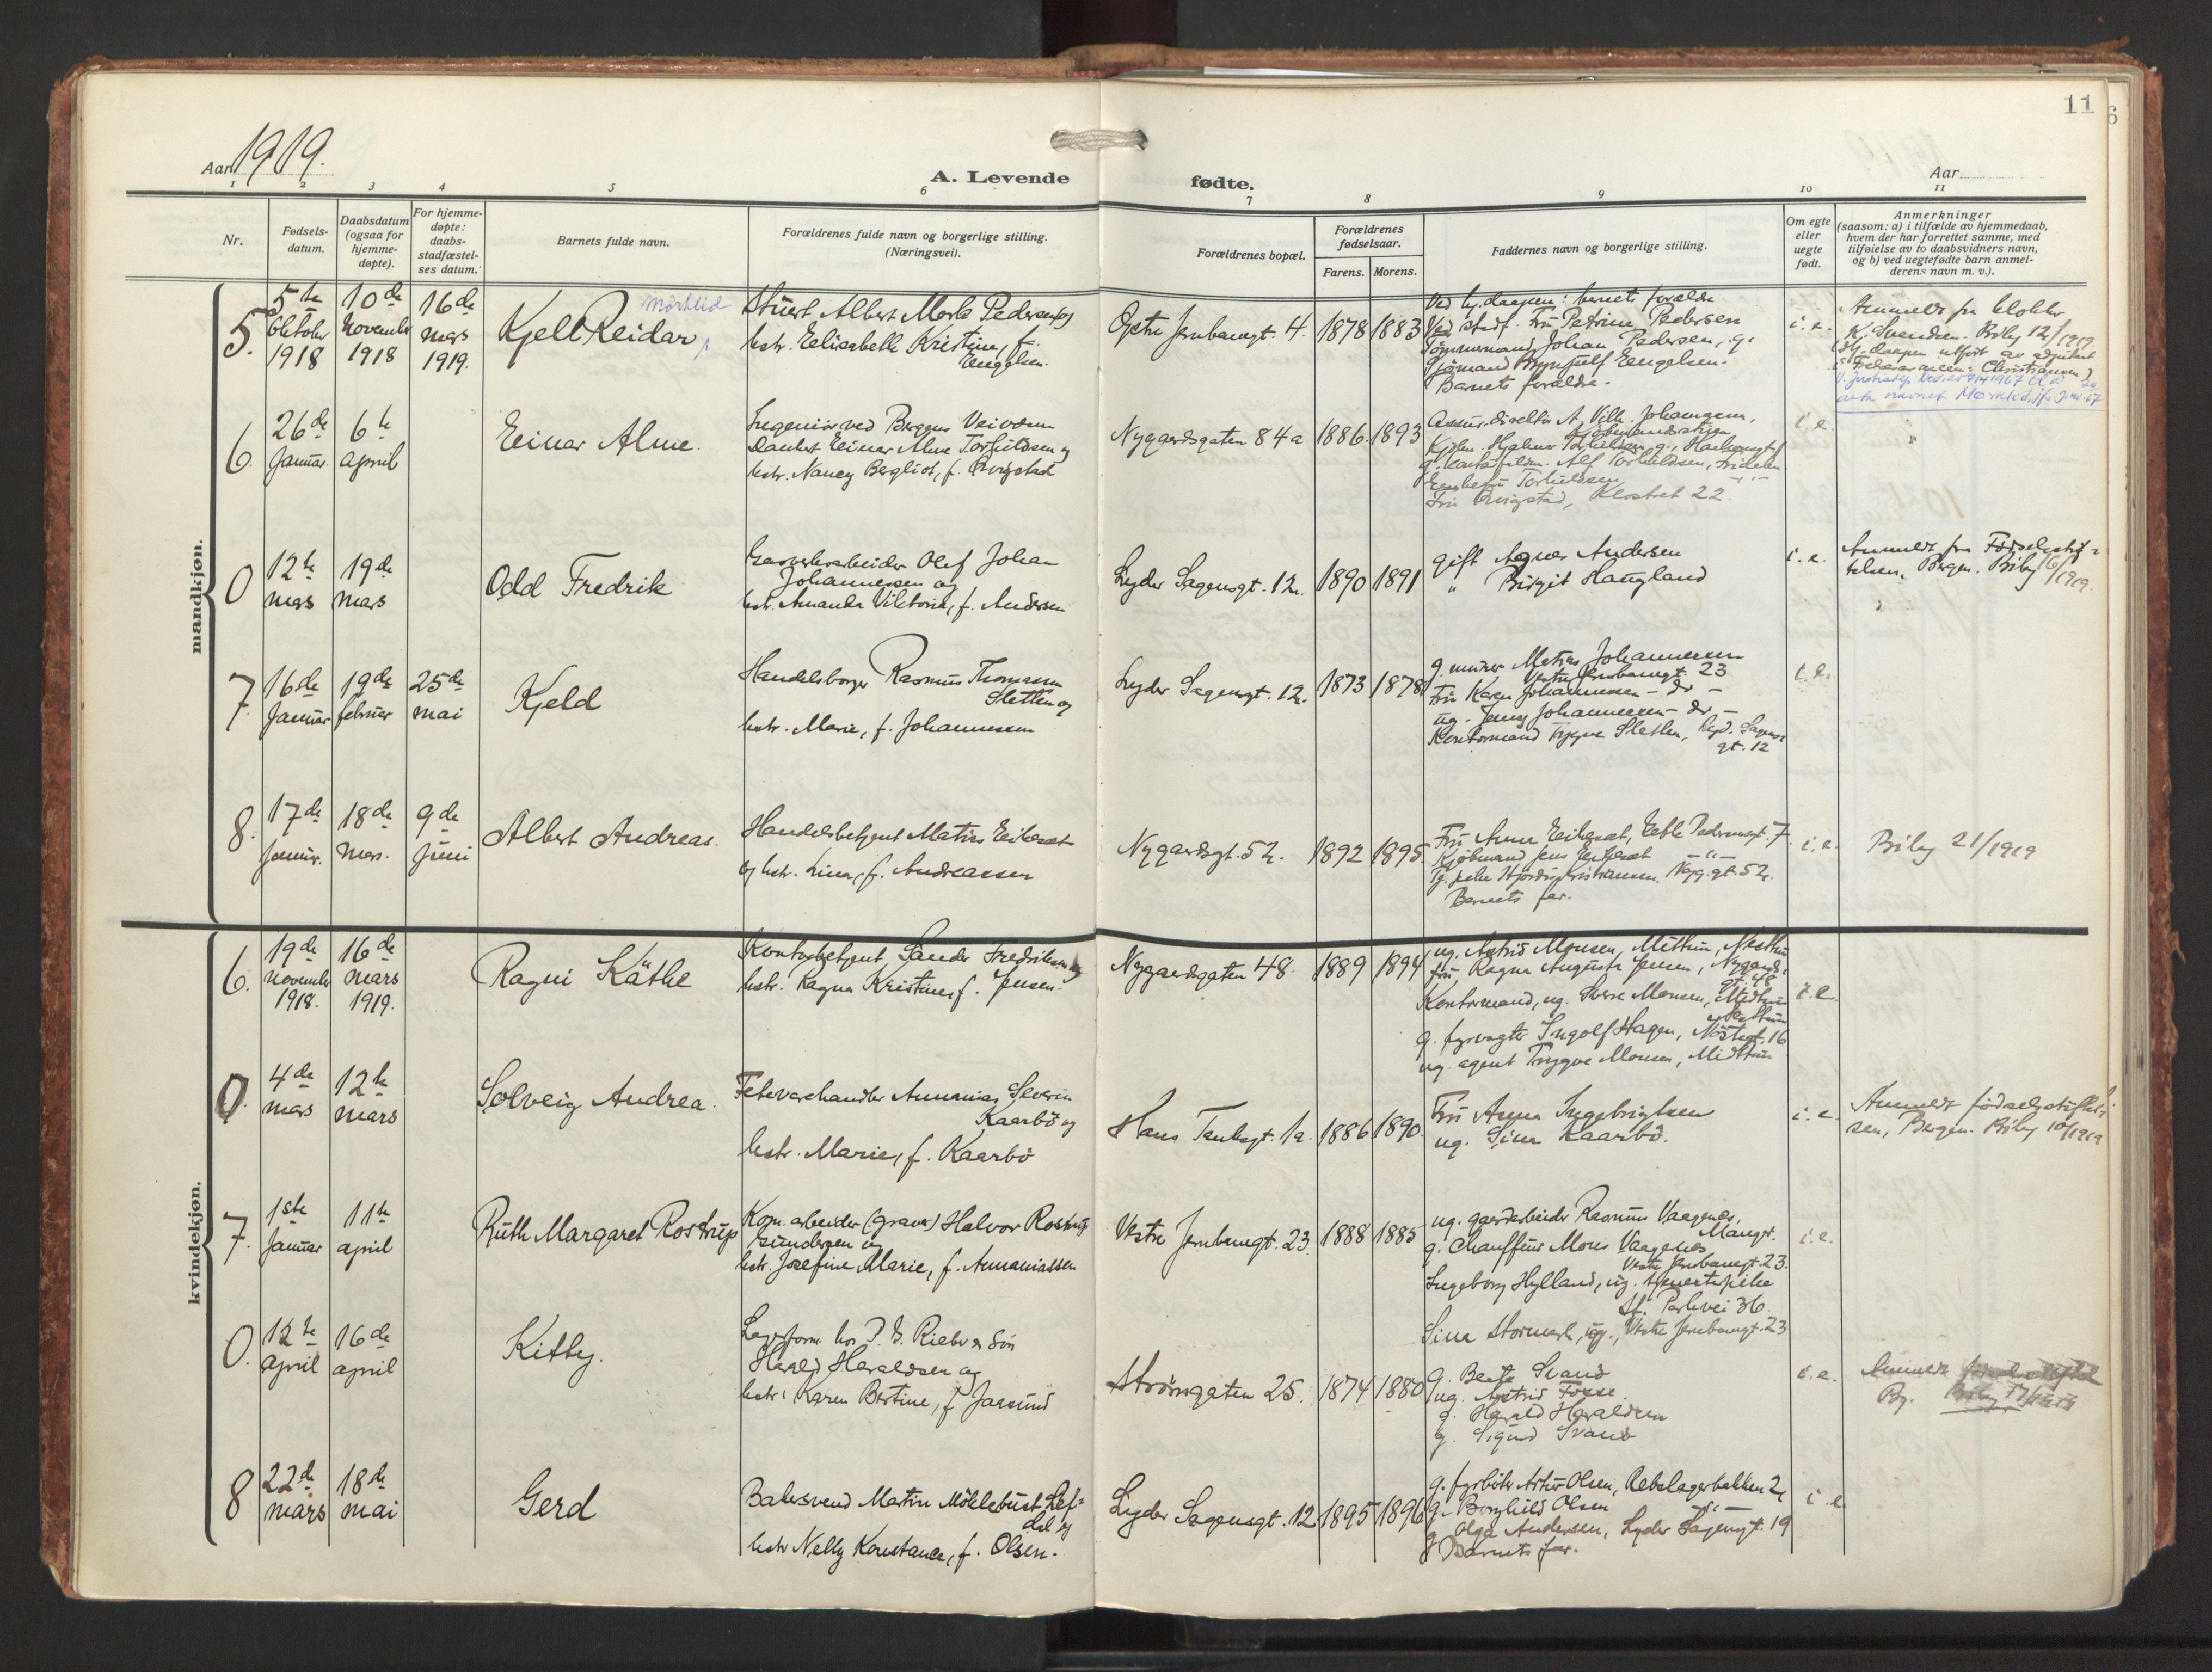 11
6
Aar 1919.
A. Levende
fødte.
Aar
1 2 3 4 5 6 7 8 9 10 11
Nr.
Fødsels-
datum.
Daabsdatum
(ogsaa for
hjemme-
døpte).
For hjemme-
døpte:
daabs-
stadfæstel-
ses datum.
Barnets fulde navn.
Forældrenes fulde navn og borgerlige stilling.
(Næringsvei).
Forældrenes bopæl.
Forældrenes
fødselsaar.
Farens.
Morens.
Faddernes navn og borgerlige stilling.
Om egte
eller
uegte
født.
Anmerkninger
(saasom: a) i tilfælde av hjemmedaab,
hvem der har forrettet samme, med
tilføielse av to daabsvidners navn,
og b) ved uegtefødte barn anmel-
derens navn m. v.).
mandkjøn.
5.
5te
Oktober
1918
10de
November
1918
16de
mars
1919.
Kjell Reidar
Stuert Albert Merle Pedersen og
hstr. Elisabeth Kristine, f.
Engelsen.
Østre Jernbanegt. 4.
1878
1883
Ved hj.daapen: barnets forældre
Ved stadf. Fru Petrine Pedersen
Tømmermand Johan Pedersen, g.
Sjømand Brynjulf Engelsen.
Barnets forældre.
i. e.
Anmeldt fra klokker
K. Svendsen. Biby 12/1919.
6.
26de
Januar
6te
april
Einar Alme.
Ingeniør ved Bergens Veivæsen
Einar Alme Torhildsen og
hstr. Nancy Bergliot, f. Qvigstad
Nygaardsgaten 84a
1886.
1893
Assur.direktør A. Vilh. Johannesen,
Alf Torhildsen,
Torhildsen
Fru Qvigstad, Klostret 22.
i. e.
"
0
12te
mars
19de
mars
Odd Fredrik
Gasverksarbeider Olef Johan
Johannessen og
hstr. Amanda Viktoria, f. Andersen
Lyder Sagensgt. 12.
1890
1891
gift Agnes Andersen
" Birgit Haugland
i. e.
Anmeldt fra Fødselsstif-
telsen, Bergen. Biby 16/1919.
7.
16de
Januar
19de
februar
25de
mai
Kjeld
Handelsborger Rasmus Thomassen
Sletten og
hstr. Marie, f. Johannessen
Lyder Sagensgt. 12.
1873
1878
g. murer Matias Johannessen
Vestre Jernbanegt. 23
Fru Karen Johannessen - do -
ug. Jenny Johannessen - do -
Kontormand Trygve Sletten, Lyd. Sagens
gt. 12
i. e.
8.
17de
Januar.
18de
mars.
9de
Juni
Albert Andreas.
Handelsbetjent Matias Eikeset
og hstr. Lina, f. Andreassen
Nygaardsgt. 52.
1892
1895
Fru Anna Eikeset,
Kjøbmand Jens Eikeset - " -
Kristiansen. Nyg.gt. 52.
Barnets far.
i. e.
Biby 21/1919
kvindekjøn.
6.
19de
November
1918.
16de
mars
1919.
Ragni Käthe
Kontorbetjent Sander Fredriksen og
hstr. Ragna Kristine, f. Jensen.
Nygaardsgaten 48.
1889
1894
ug. Astrid Monsen, Mittun, Nesttun
fru Ragna Augusta Jensen, Nygaards-
gt. 48
Kontormand, ug. Sverre Monsen, Midttun
Nesttun
g. fyrvogter Ingolf Hagen, Nøstegt. 16
ug. agent Trygve Monsen, Midttun
i. e.
0.
4de
mars
12te
mars
Solveig Andrea.
Fetevarehandler Annanias Severin
Kaarbø og
hstr. Marie, f. Kaarbø
Hans Tanksgt. 1a.
1886
1890
Fru Anna Ingebrigtsen
ug. Sina Kaarbø.
i. e.
Anmeldt fødselsstiftel-
sen, Bergen. Biby 10/1919
7.
1ste
Januar
11te
april
Ruth Margaret Rostrup
Kom. arbeider (graver) Halvor Rostrup
Gundersen og
hstr. Josefine Marie, f. Annaniassen
Vestre Jernbanegt. 23
1888
1885
ug. gaardarbeider Rasmus Vaagenes,
Manger.
g. Chauffeur Mons Vaagenes
Vestre Jernbanegt. 23.
Ingeborg Hylland, ug. tjenestepike
Parkvei 36.
Sina Stormark, ug., Vestre Jernbanegt. 23
i. e.
0.
12te
april
16de
april
Kitty.
Lagerform. hos P. G. Rieber & Søn
Harald Haraldsen og
hstr. Karen Bertine, f. Jaasund
Strømgaten 25.
1874
1880
g. Berta Svanø
ug. Astrid Fosse.
g. Harald Haraldsen
g. Sigurd Svanø
i. e.
Anmeldt
8
22de
mars
18de
mai
Gerd
Bakersvend Martin Møklebust Lef-
dal og
hstr Nelly Konstance, f. Olsen.
Lyder Sagensgt. 12
1895
1896
g. fyrbøter Artur Olsen, Rebslagerbakken 2
g. Borghild Olsen - " -
g. Olga Andersen, Lyder Sagensgt. 19
Barnets far.
i. e.